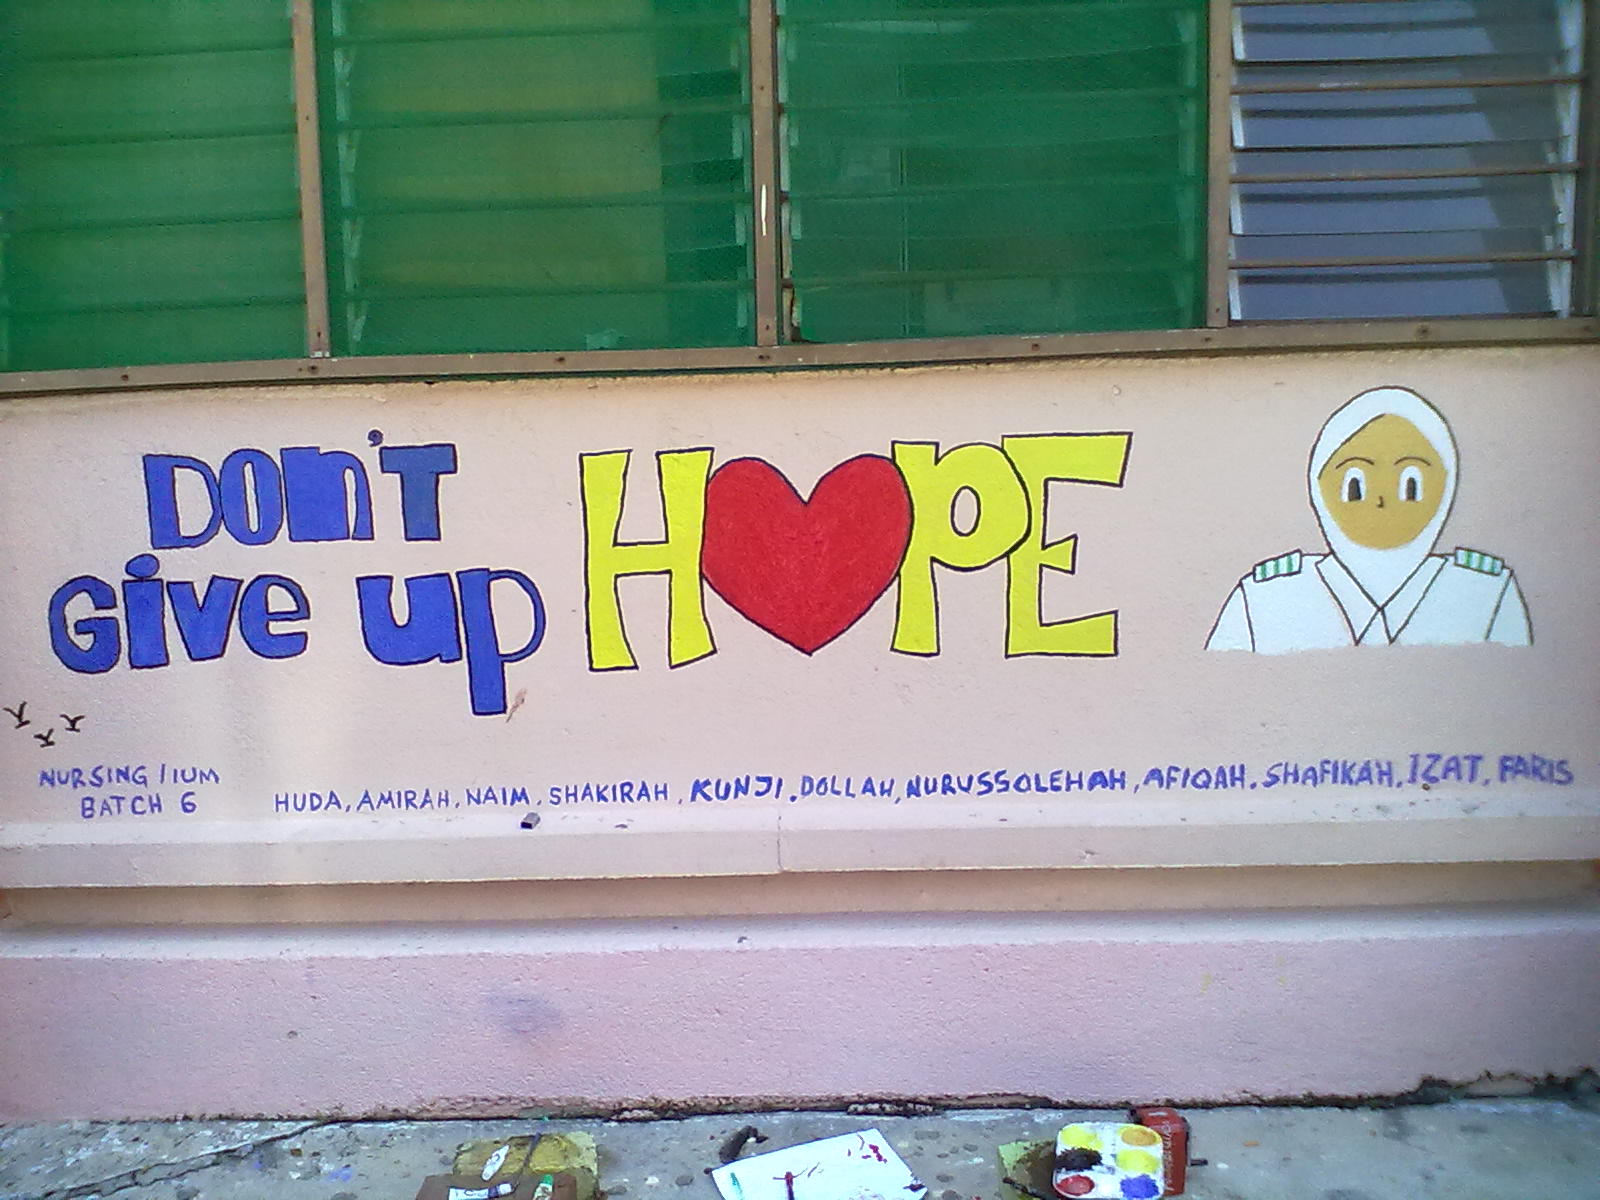 DON'T
GIVE UP
H PE
NURSING / IIUM
BATCH 6
HUDA, AMIRAH, NAIM, SHAKIRAH, KUNJI, DOLLAH, NURUSSOLEHAH, AFIQAH, SHAFIKAH, IZAT, FARIS